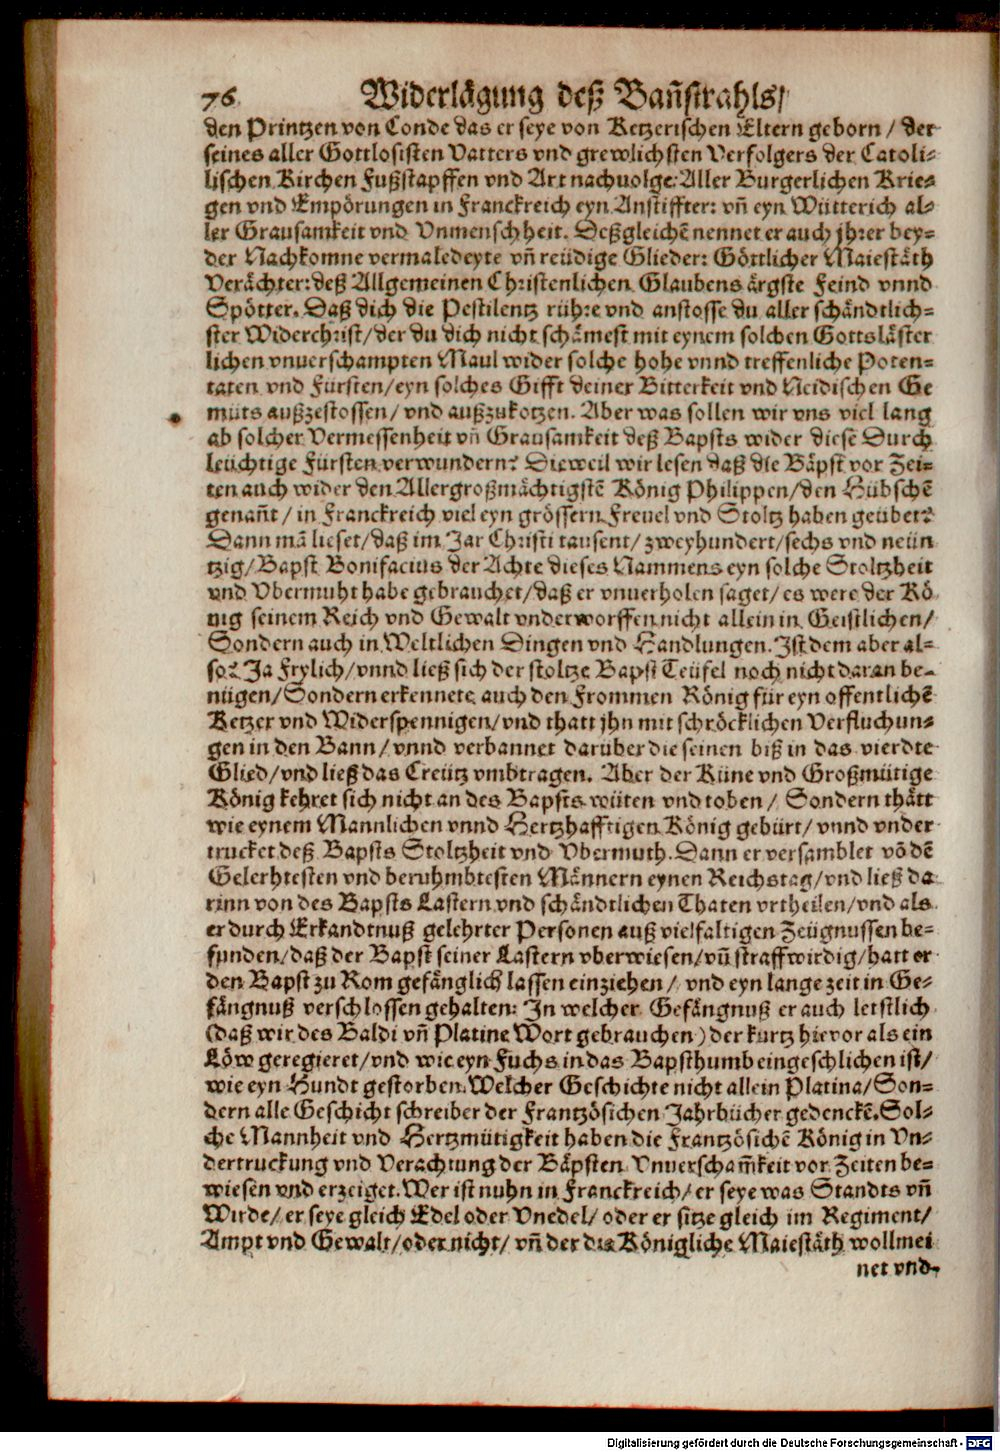 76 Widerlägung deß Bañstrahls/
den Printzen von Conde das er seye von Ketzerischen Eltern geborn / der
seines aller Gottlosisten Vatters vnd grewlichsten Verfolgers der Catoli⸗
lischen Kirchen Fußstapffen vnd Art nachuolge: Aller Burgerlichen Krie⸗
gen vnd Empörungen in Franckreich eyn Anstiffter: vñ eyn Wütterich al⸗
ler Grausamkeit vnd Vnmenschheit. Deßgleichẽ nennet er auch jhrer bey⸗
der Nachkomne vermaledeyte vñ reüdige Glieder: Göttlicher Maiestäth
Verächter: deß Allgemeinen Christenlichen Glaubens ärgste Feind vnnd
Spötter. Daß dich die Pestilentz rühre vnd anstosse du aller schändtlich⸗
ster Widerchrist/ der du dich nicht schämest mit eynem solchen Gottsläster
lichen vnuerschampten Maul wider solche hohe vnnd treffenliche Poten⸗
taten vnd Fürsten/ eyn solches Gifft deiner Bitterkeit vnd Neidischen Ge
müts außzestossen/ vnd außzukotzen. Aber was sollen wir vns viel lang
ab solcher Vermessenheit vñ Grausamkeit deß Bapsts wider diese Durch
leüchtige Fürsten verwundern? Dieweil wir lesen daß die Bäpst vor Zei⸗
ten auch wider den Allergroßmächtigstẽ König Philippen/ den Hübschẽ
genañt / in Franckreich viel eyn grössern Freuel vnd Stoltz haben geübet?
Dann mã lieset/ daß im Jar Christi tausent/ zweyhundert/ sechs vnd neün
tzig/ Bapst Bonifacius der Achte dieses Nammens eyn solche Stoltzheit
vnd Vbermuht habe gebrauchet/ daß er vnuerholen saget/ es were der Kö
nig seinem Reich vnd Gewalt vnderworffen nicht allein in Geistlichen/
Sondern auch in Weltlichen Dingen vnd Handlungen. Ist dem aber al⸗
so? Ja Frylich/ vnnd ließ sich der stoltze Bapst Teüfel noch nicht daran be⸗
nügen/ Sondern erkennete auch den Frommen König für eyn offentlichẽ
Ketzer vnd Widerspennigen/ vnd thatt jhn mit schröcklichen Verfluchun⸗
gen in den Bann/ vnnd verbannet darüber die seinen biß in das vierdte
Glied/ vnd ließ das Creütz vmbtragen. Aber der Küne vnd Großmütige
König kehret sich nicht an des Bapsts wüten vnd toben / Sondern thätt
wie eynem Mannlichen vnnd Hertzhafftigen König gebürt/ vnnd vnder
trucket deß Bapsts Stoltzheit vnd Vbermuth. Dann er versamblet võ dẽ
Gelerhtesten vnd beruhmbtesten Männern eynen Reichstag/ vnd ließ da
rinn von des Bapsts Lastern vnd schändtlichen Thaten vrtheilen/ vnd als
er durch Erkandtnuß gelehrter Personen auß vielfaltigen Zeügnussen be⸗
funden/ daß der Bapst seiner Lastern vberwiesen/ vñ straffwirdig/ hatt er
den Bapst zu Rom gefänglich lassen einziehen / vnd eyn lange zeit in Ge⸗
fängnuß verschlossen gehalten: In welcher Gefängnuß er auch letstlich
(daß wir des Baldi vñ Platine Wort gebrauchen) der kurtz hievor als ein
Löw geregieret/ vnd wie eyn Fuchs in das Bapsthumb eingeschlichen ist/
wie eyn Hundt gestorben. Welcher Geschichte nicht allein Platina/ Son⸗
dern alle Geschicht schreiber der Frantzösichen Jahrbücher gedenckẽ. Sol⸗
che Mannheit vnd Hertzmütigkeit haben die Frantzösichẽ König in Vn⸗
dertruckung vnd Verachtung der Bäpsten Vnuerscham̃keit vor Zeiten be⸗
wiesen vnd erzeiget. Wer ist nuhn in Franckreich/ er seye was Standts vñ
Wirde/ er seye gleich Edel oder Vnedel/ oder er sitze gleich im Regiment/
Ampt vnd Gewalt/ oder nicht/ vñ der die Königliche Maiestäth wollmei
net vnd
Digitalisierung gefördert durch die Deutsche Forschungsgemeinschaft - DFG